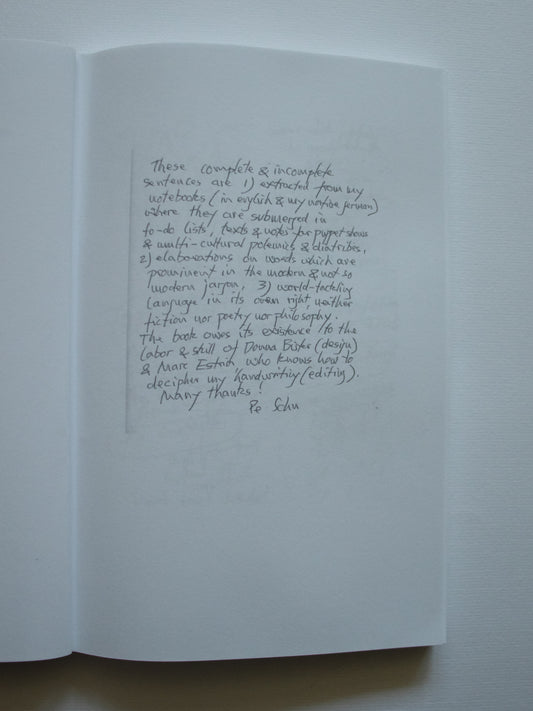 These complete & incomplete
sentences are 1) extracted from my
notebooks (in english & my native german)
where they are submerged in
to-do lists, texts & notes for puppet shows
& multi-cultural polemics & diatribes,
2) elaborations on words which are
prominent in the modern & not so
modern jargon, 3) world-tackling
language in its own right, neither
fiction nor poetry nor philosophy.
The book owes its existence to the
labor & skill of Donna Bister (design)
& Marc Estrin who knows how to
decipher my handwriting (editing).
Many thanks!